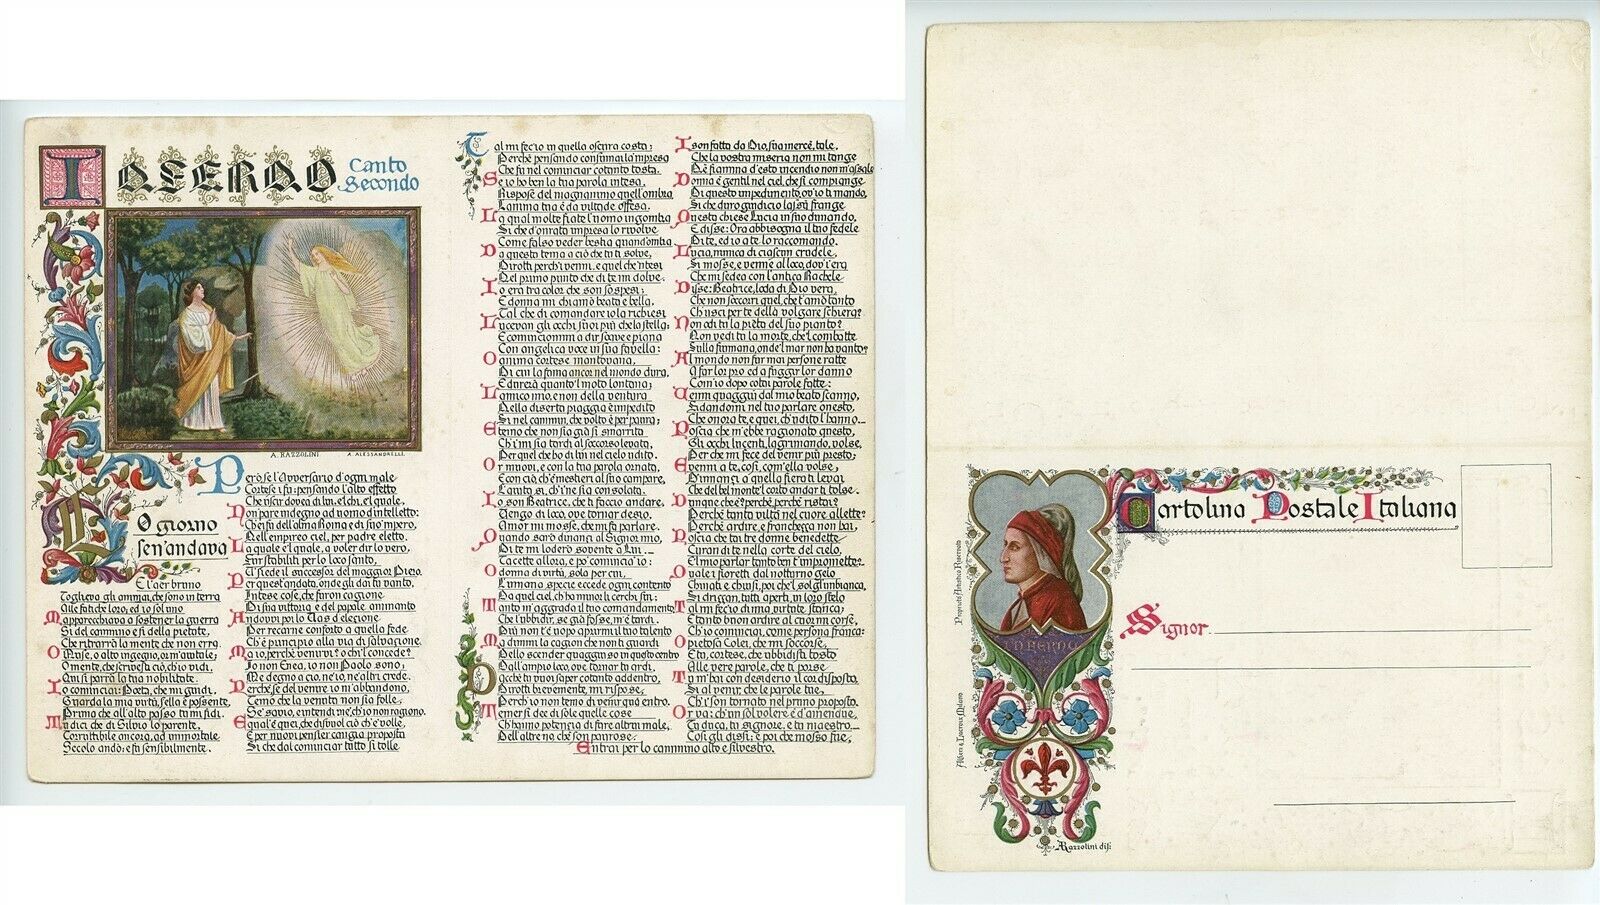 INFERNO Canto
Secondo
A. RAZZOLINI A. ALESSANDRELLI
LO giorno
sen'andava
E l'aer bruno
Toglieva gli animai, che sono in terra
Alle fatiche loro, ed io sol uno
M'apparecchiava a sostener la guerra
Sì del cammino e sì della pietate,
Che ritrarrà la mente che non erra.
O Muse, o alto ingegno, or m'aiutate;
O mente, che scrivesti ciò, ch'io vidi,
Qui si parrà la tua nobilitate.
Io cominciai: Poeta, che mi guidi,
Guarda la mia virtù, s'ella è possente,
Prima che all'alto passo tu mi fidi.
Tu dici che di Silvio lo parente,
Corruttibile ancora, ad immortale
Secolo andò, e fu sensibilmente.
Però, se l'Avversario d'ogni male
Cortese i fu, pensando l'alto effetto
Che uscir dovea di lui, e'l chi, e'l quale,
Non pare indegno ad uomo d'intelletto:
Ch'ei fu dell'alma Roma e di suo'mpero,
Nell'empireo ciel, per padre eletto.
La quale e'l quale, a voler dir lo vero,
Fur stabiliti per lo loco santo,
U'siede il successor del maggior Piero.
Per quest'andata, onde gli dai tu vanto,
Intese cose, che furon cagione
Di sua vittoria e del papale ammanto
Andovvi poi lo Vas d'elezione
Per recarne conforto a quella fede
Ch'è principio alla via di salvazione.
Ma io, perchè venirvi? o chi'l concede?
Io non Enea, io non Paolo sono;
Me degno a ciò, nè io, nè altri crede.
Perchè se del venire io m'abbandono,
Temo che la venuta non sia folle.
Se' savio, e intendi me' ch'io non ragiono.
E qual è quei, che disvuol ciò ch'e' volle,
E per nuovi pensier cangia proposta
Sì che dal cominciar tutto si tolle
Tal mi fec'io in quella oscura costa;
Perchè pensando consumai la impresa
Che fu nel cominciar cotanto tosta.
Se io ho ben la tua parola intesa,
Rispose del magnanimo quell'ombra
L'anima tua è da viltade offesa,
La qual molte fiate l'uomo ingombra
Sì che d'onrata impresa lo rivolve
Come falso veder bestia quand'ombra
Da questa tema a ciò che tu ti solve,
Dirotti perch'i'venni, e quel che'ntesi
Nel primo punto che di te mi dolve.
Io era tra color che son sospesi;
E donna mi chiamò beata e bella,
Tal che di comandare io la richiesi
Lucevan gli occhi suoi più che la stella:
E cominciommi a dir soave e piana
Con angelica voce in sua favella:
O anima cortese mantovana,
Di cui la fama ancor nel mondo dura,
E durerà quanto'l moto lontana;
L'amico mio, e non della ventura
Nella diserta piaggia è impedito
Sì nel cammin, che volto è per paura:
E temo che non sia già sì smarrito
Ch'i'mi sia tardi al soccorso levata,
Per quel ch'io ho di lui nel cielo udito.
Or muovi, e con la tua parola ornata,
E con ciò ch'è mestieri al suo campare,
L'aiuta sì, ch'i'ne sia consolata.
Io son Beatrice, che ti faccio andare,
Vengo di loco, ove tornar desio,
Amor mi mosse, che mi fa parlare.
Quando sarò dinanzi al Signor mio,
Di te mi loderò sovente a Lui.__
Tacette allora, e po'cominciai io:
O donna di virtù, sola per cui,
L'umana specie eccede ogni contento
Da quel ciel, c'ha minor li cerchi sui;
Tanto m'aggrada il tuo comandamento,
Che l'ubbidir, se già fosse, m'è tardi.
Più non t'è uopo aprirmi il tuo talento
Ma dimmi la cagion che non ti guardi
Dello scender quaggiuso in questo centro
Dall'ampio loco, ove tornar tu ardi.
Da che tu vuoi saper cotanto addentro,
Dirotti brevemente, mi rispose,
Perch'io non temo di venir qua entro.
Temer si dee di sole quelle cose
Ch'hanno potenza di fare altrui male,
Dell'altre no chè son paurose.
Io son fatta da Dio, sua mercè, tale,
Che la vostra miseria non mi tange
Nè fiamma d'esto incendio non m'assale
Donna è gentil nel ciel, che si compiange
Di questo impedimento, ov'io ti mando,
Sì che duro giudicio lassù frange
Questa chiese Lucia in suo dimando,
E disse: Ora abbisogna il tuo fedele
Di te, ed io a te lo raccomando.
Lucia, nimica di ciascun crudele,
Si mosse, e venne al loco, dov'i'era
Che mi sedea con l'antica Rachele
Disse: Beatrice, loda di Dio vera,
Che non soccorri quei, che t'amò tanto
Ch'uscì per te della volgare schiera?
Non odi tu la pieta del suo pianto?
Non vedi tu la morte, che'l combatte
Sulla fiumana, onde'l mar non ha vanto?
Al mondo non fur mai persone ratte
A far lor pro ed a fuggir lor danno
Com'io dopo cotai parole fatte:
Venni quaggiù dal mio beato scanno,
Fidandomi nel tuo parlare onesto,
Che onora te, e quei, ch'udito l'hanno.__
Poscia che m'ebbe ragionato questo,
Gli occhi lucenti, lagrimando, volse,
Per che mi fece del venir più presto;
E venni a te, così, com'ella volse,
Dinnanzi a quella fiera ti levai
Che del bel monte'l corto andar ti tolse.
Dunque che è? perchè, perchè ristai?
Perchè tanta viltà nel cuore allette?
Perchè ardire e franchezza non hai,
Poscia che tai tre donne benedette
Curan di te nella corte del cielo,
E'l mio parlar tanto ben t'impromette?
Quale i fioretti dal notturno gelo
Chinati e chiusi, poi che'l sol gl'imbianca,
Si drizzan tutti aperti in loro stelo
Tal mi fec'io di mia virtute stanca;
E tanto buon ardire al cuor mi corse,
Ch'io cominciai, come persona franca:
O pietosa Colei, che mi soccorse,
E tu, cortese, che ubbidisti tosto
Alle vere parole, che ti porse
Tu m'hai con desiderio il cor disposto,
Sì al venir, che le parole tue,
Ch'i'son tornato nel primo proposto,
Or va; ch'un sol volere è d'amendue,
Tu duca, tu signore, e tu maestro.__
Così gli dissi; e poi che mosso fue,
Entrai per lo cammino alto e silvestro.
Cartolina Postale Italiana
Signor
INFERNO
Proprietà Artistica Riservata
Alfieri & Lacroix Milano
A Razzolini dis.